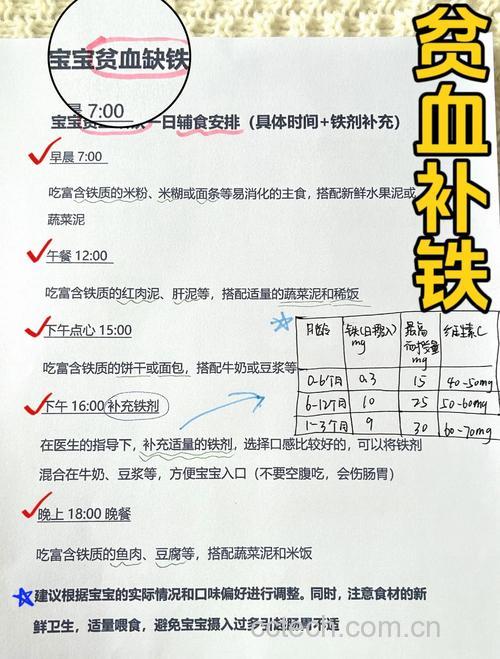 贫血补铁
宝宝贫血缺铁
晨 7:00
宝宝一日辅食安排（具体时间+铁剂补充）
早晨 7:00
吃富含铁质的米粉、米糊或面条等易消化的主食，搭配新鲜水果泥或
蔬菜泥
午餐 12:00
吃富含铁质的红肉泥、肝泥等，搭配适量的蔬菜泥和稀饭
下午点心 15:00
吃富含铁质的饼干或面包，搭配牛奶或豆浆等
下午 16:00 补充铁剂
月龄 铁(日摄入)mg 最高耐受量mg 维生素C
0-6个月 0.3 15 40-50mg
6-12个月 10 25 50-60mg
1-3个月 9 30 60-70mg
在医生的指导下，补充适量的铁剂，选择口感比较好的，可以将铁剂
混合在牛奶、豆浆等，方便宝宝入口（不要空腹吃，会伤肠胃）
晚上 18:00 晚餐
吃富含铁质的鱼肉、豆腐等，搭配蔬菜泥和米饭
建议根据宝宝的实际情况和口味偏好进行调整。同时，注意食材的新
鲜卫生，适量喂食，避免宝宝摄入过多引起肠胃不适
cctech.com.cn